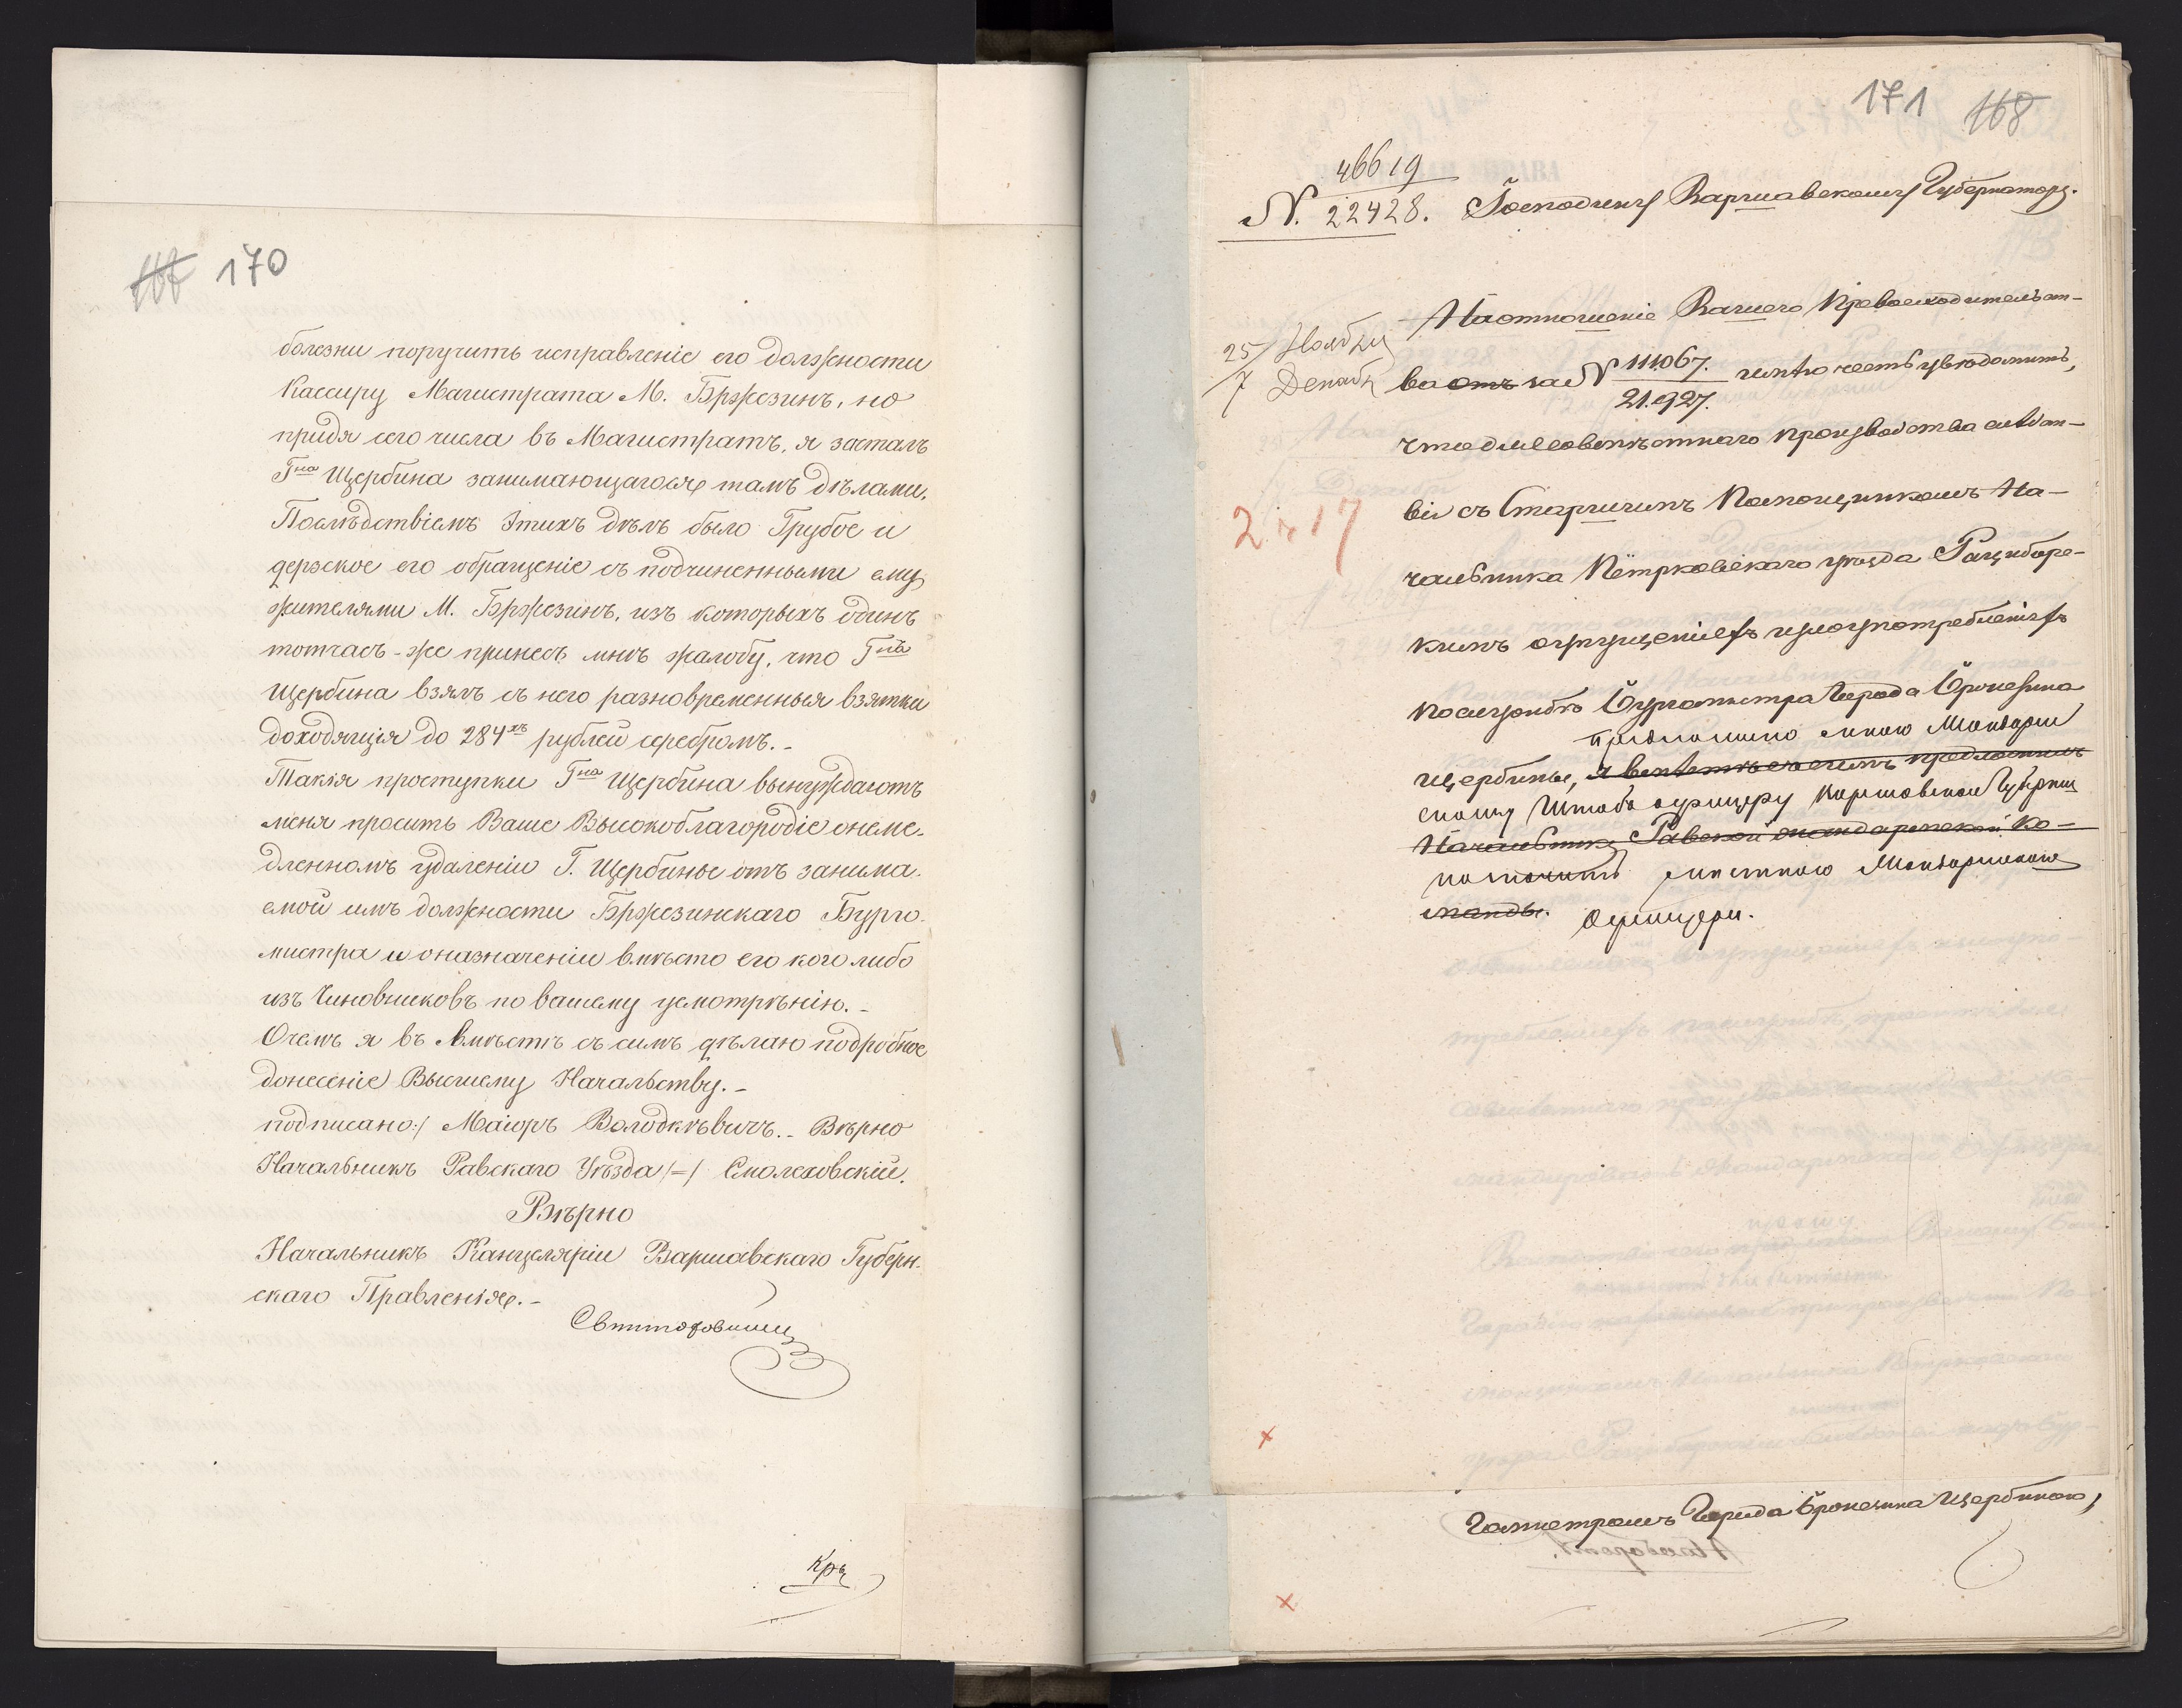 167 170
болезни поручить исправленіе его должности
Кассиру Магистрата М. Бржезинъ, но
придя сего числа въ Магистратъ, я засталъ
Гна Щербина занимающагося тамъ дѣлами.
Послѣдствіемъ этихъ дѣлъ было Грубое и
дерзское его обращеніе съ подчиненными ему
жителями М. Бржезинъ, изъ которыхъ одинъ
тотчасъ-же принесъ мнѣ жалобу, что Гна
Щербина взялъ съ него разновременныя взятки
доходящія до 284хъ рублей серебромъ.-
Такія проступки Гна Щербина вынуждаютъ
меня просить Ваше Высокоблагородіе онеме-
дленномъ удаленіи Г. Щербины отъ занима-
емой имъ должности Бржезинскаго Бурго-
мистра и оназначеніи вмѣсто его кого либо
изъ Чиновниковъ по вашему усмотрѣнію.-
Очемъ я въ вмѣстѣ съ симъ дѣлаю подробное
донесеніе Высшему Начальству.-
подписано:/ Маіоръ Володкѣвичъ.- Вѣрно
Начальникъ Равскаго Уѣзда /-/ Смолеховскій.
Вѣрно
Начальникъ Канцеляріи Варшавскаго Губерн-
скаго Правленія.-
171 168
46619
N. 22428. Господину Варшавскому Губернатору.
На отношеніе Вашего Превосходительст-
25/7 Ноября Декаб
ва отъ за N 111067. / 21.927. имѣю честь увѣдомить,
что для совмѣстнаго производства слѣдст-
2 и 17
вія съ Старшимъ Помощникомъ На-
чальника Пётрковскаго уѣзда Рацибор-
скимъ о упущеніяхъ и злоупотребленіяхъ
по службѣ Бургомистра Города Бржезина
предписано мною Жандарм
Щербины, я вмѣстѣ съ симъ предложилъ
скому Штабъ офицеру Варшавской Губерніи
Начальнику Равской жандармской ко-
назначить мѣстнаго Жандармскаго
манды. Офицера.
гомистромъ Города Бржезина Щербиною,